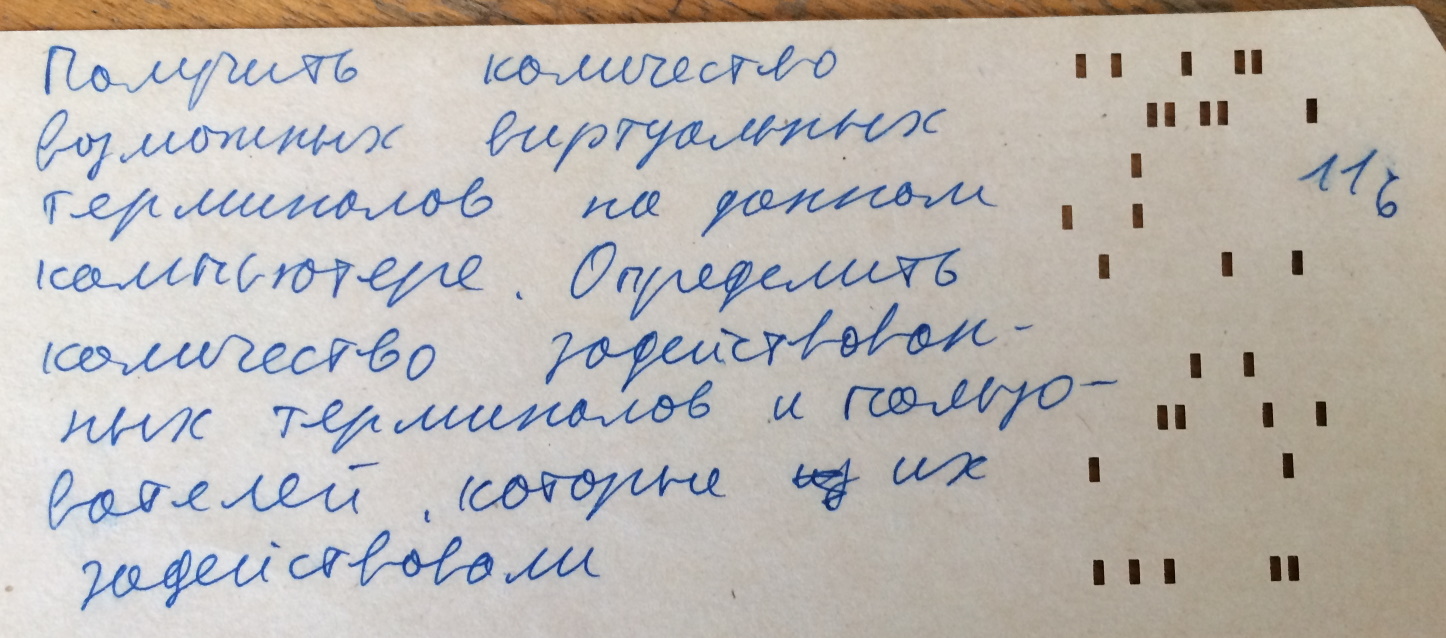 Получить количество
возможных виртуальных
терминалов на данном
11б
компьютере. Определить
количество задействован-
ных терминалов и пользо-
вателей, которые их
задействовали